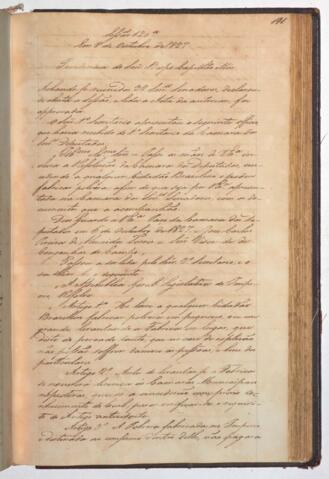 191
Sessão 120ª
Em 8 de Outubro de 1827
Presidencia do Senr. Bispo Capellão Mór
Achando-se reunidos 29 Snrs. Senadores, declarou-
se aberta a Sessão, e lida a Acta da anterior, foi
approvada.
O Senr. 1º Secretario apresentou o seguinte officio
que havia recebido do 1º Secretario da Camara dos
Snrs. Deputados.
Passo ás mãos de V. Exª
a Resolução da Camara dos Deputados,
a qualquer Cidadão Brasileiro o poder
fabricar polvora, afim de que seja por V. Exª apresen-
tada na Camara dos Snrs. Senadores, com os do-
cumentos que a acompanhão.
Deos Guarde a V. Exª. Paço da Camara dos De-
putados em 6 de Outubro de 1827. José Carlos
Pereira de Almeida Torres Senr. Visconde de
Congonhas do Campo.
2º Secretario, e o
é o seguinte
A Assembléa Geral Legislativa do Imperio
Resolve
Artigo 1º He livre a qualquer Cidadão
Brasileiro fabricar polvora em pequeno, ou em
grande, levantar a Fabrica em lugar, que
diste do povoado tanto, que no caso de explosão
não possão soffrer damno as pessoas, e bens dos
particulares.
Artigo 2º Antes de levantar-se a Fabrica
licença ás Camaras Municipaes
respectivas, que as concederão com previo co-
nhecimento do local para verificar-se o requisi-
to do Artigo antecedente.
Artigo 3º A Polvora fabricada no Imperio
e destinada ao consumo dentro delle, não pagará